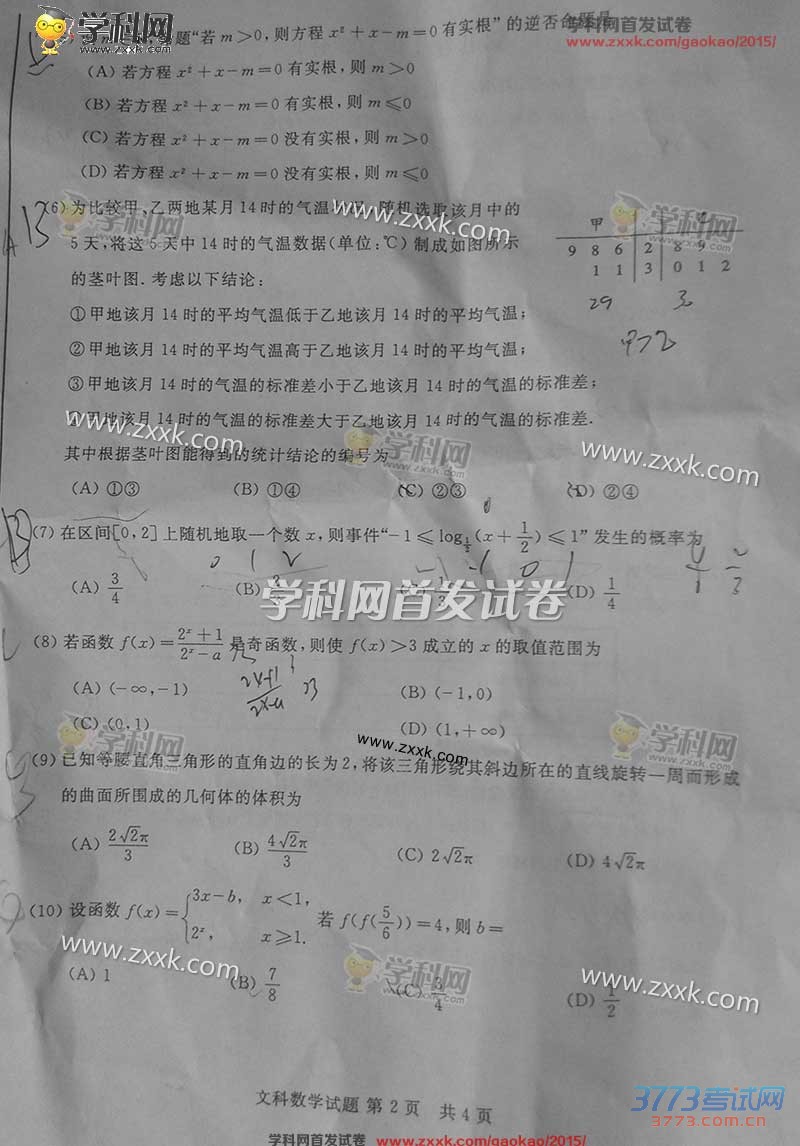 学科网
www.zxxk.com
题“若 m>0,则方程 x²+x-m=0 有实根”的逆否命题是
学科网首发试卷
www.zxxk.com/gaokao/2015/
(A) 若方程 x²+x-m=0 有实根,则 m>0
(B) 若方程 x²+x-m=0 有实根,则 m≤0
(C) 若方程 x²+x-m=0 没有实根,则 m>0
(D) 若方程 x²+x-m=0 没有实根,则 m≤0
(6) 为比较甲、乙两地某月 14 时的气温 随机选取该月中的
甲
5 天,将这 5 天中 14 时的气温数据(单位:℃)制成如图所示
9 8 6 2 8 9
1 1 3 0 1 2
的茎叶图. 考虑以下结论:
29
①甲地该月 14 时的平均气温低于乙地该月 14 时的平均气温;
②甲地该月 14 时的平均气温高于乙地该月 14 时的平均气温;
甲>乙
③甲地该月 14 时的气温的标准差小于乙地该月 14 时的气温的标准差;
甲地该月 14 时的气温的标准差大于乙地该月 14 时的气温的标准差.
www.zxxk.com
学科网
其中根据茎叶图能得到的统计结论的编号为
www.zxxk.com
(A) ①③ (B) ①④ (C) ②③ (D) ②④
(7) 在区间[0,2]上随机地取一个数 x,则事件“-1≤log½(x+1/2)≤1”发生的概率为
0 1 2 -1 -1 0 1
(A) 3/4 (B) (C) 1/3 (D) 1/4
学科网首发试卷
(8) 若函数 f(x)=(2ˣ+1)/(2ˣ-a) 是奇函数,则使 f(x)>3 成立的 x 的取值范围为
(A) (-∞,-1) (B) (-1,0)
(C) (0,1) (D) (1,+∞)
www.zxxk.com
(9) 已知等腰直角三角形的直角边的长为 2,将该三角形绕其斜边所在的直线旋转一周而形成
的曲面所围成的几何体的体积为
(A) 2√2π/3 (B) 4√2π/3 (C) 2√2π (D) 4√2π
(10) 设函数 f(x)={3x-b, x<1,
2ˣ, x≥1.
若 f(f(5/6))=4,则 b=
www.zxxk.com
学科网
www.zxxk.com
www.zxxk.com
(A) 1 (B) 7/8 (C) 3/4 (D) 1/2
文科数学试题 第 2 页 共 4 页
3773考试网
3773.com.cn
学科网首发试卷 www.zxxk.com/gaokao/2015/